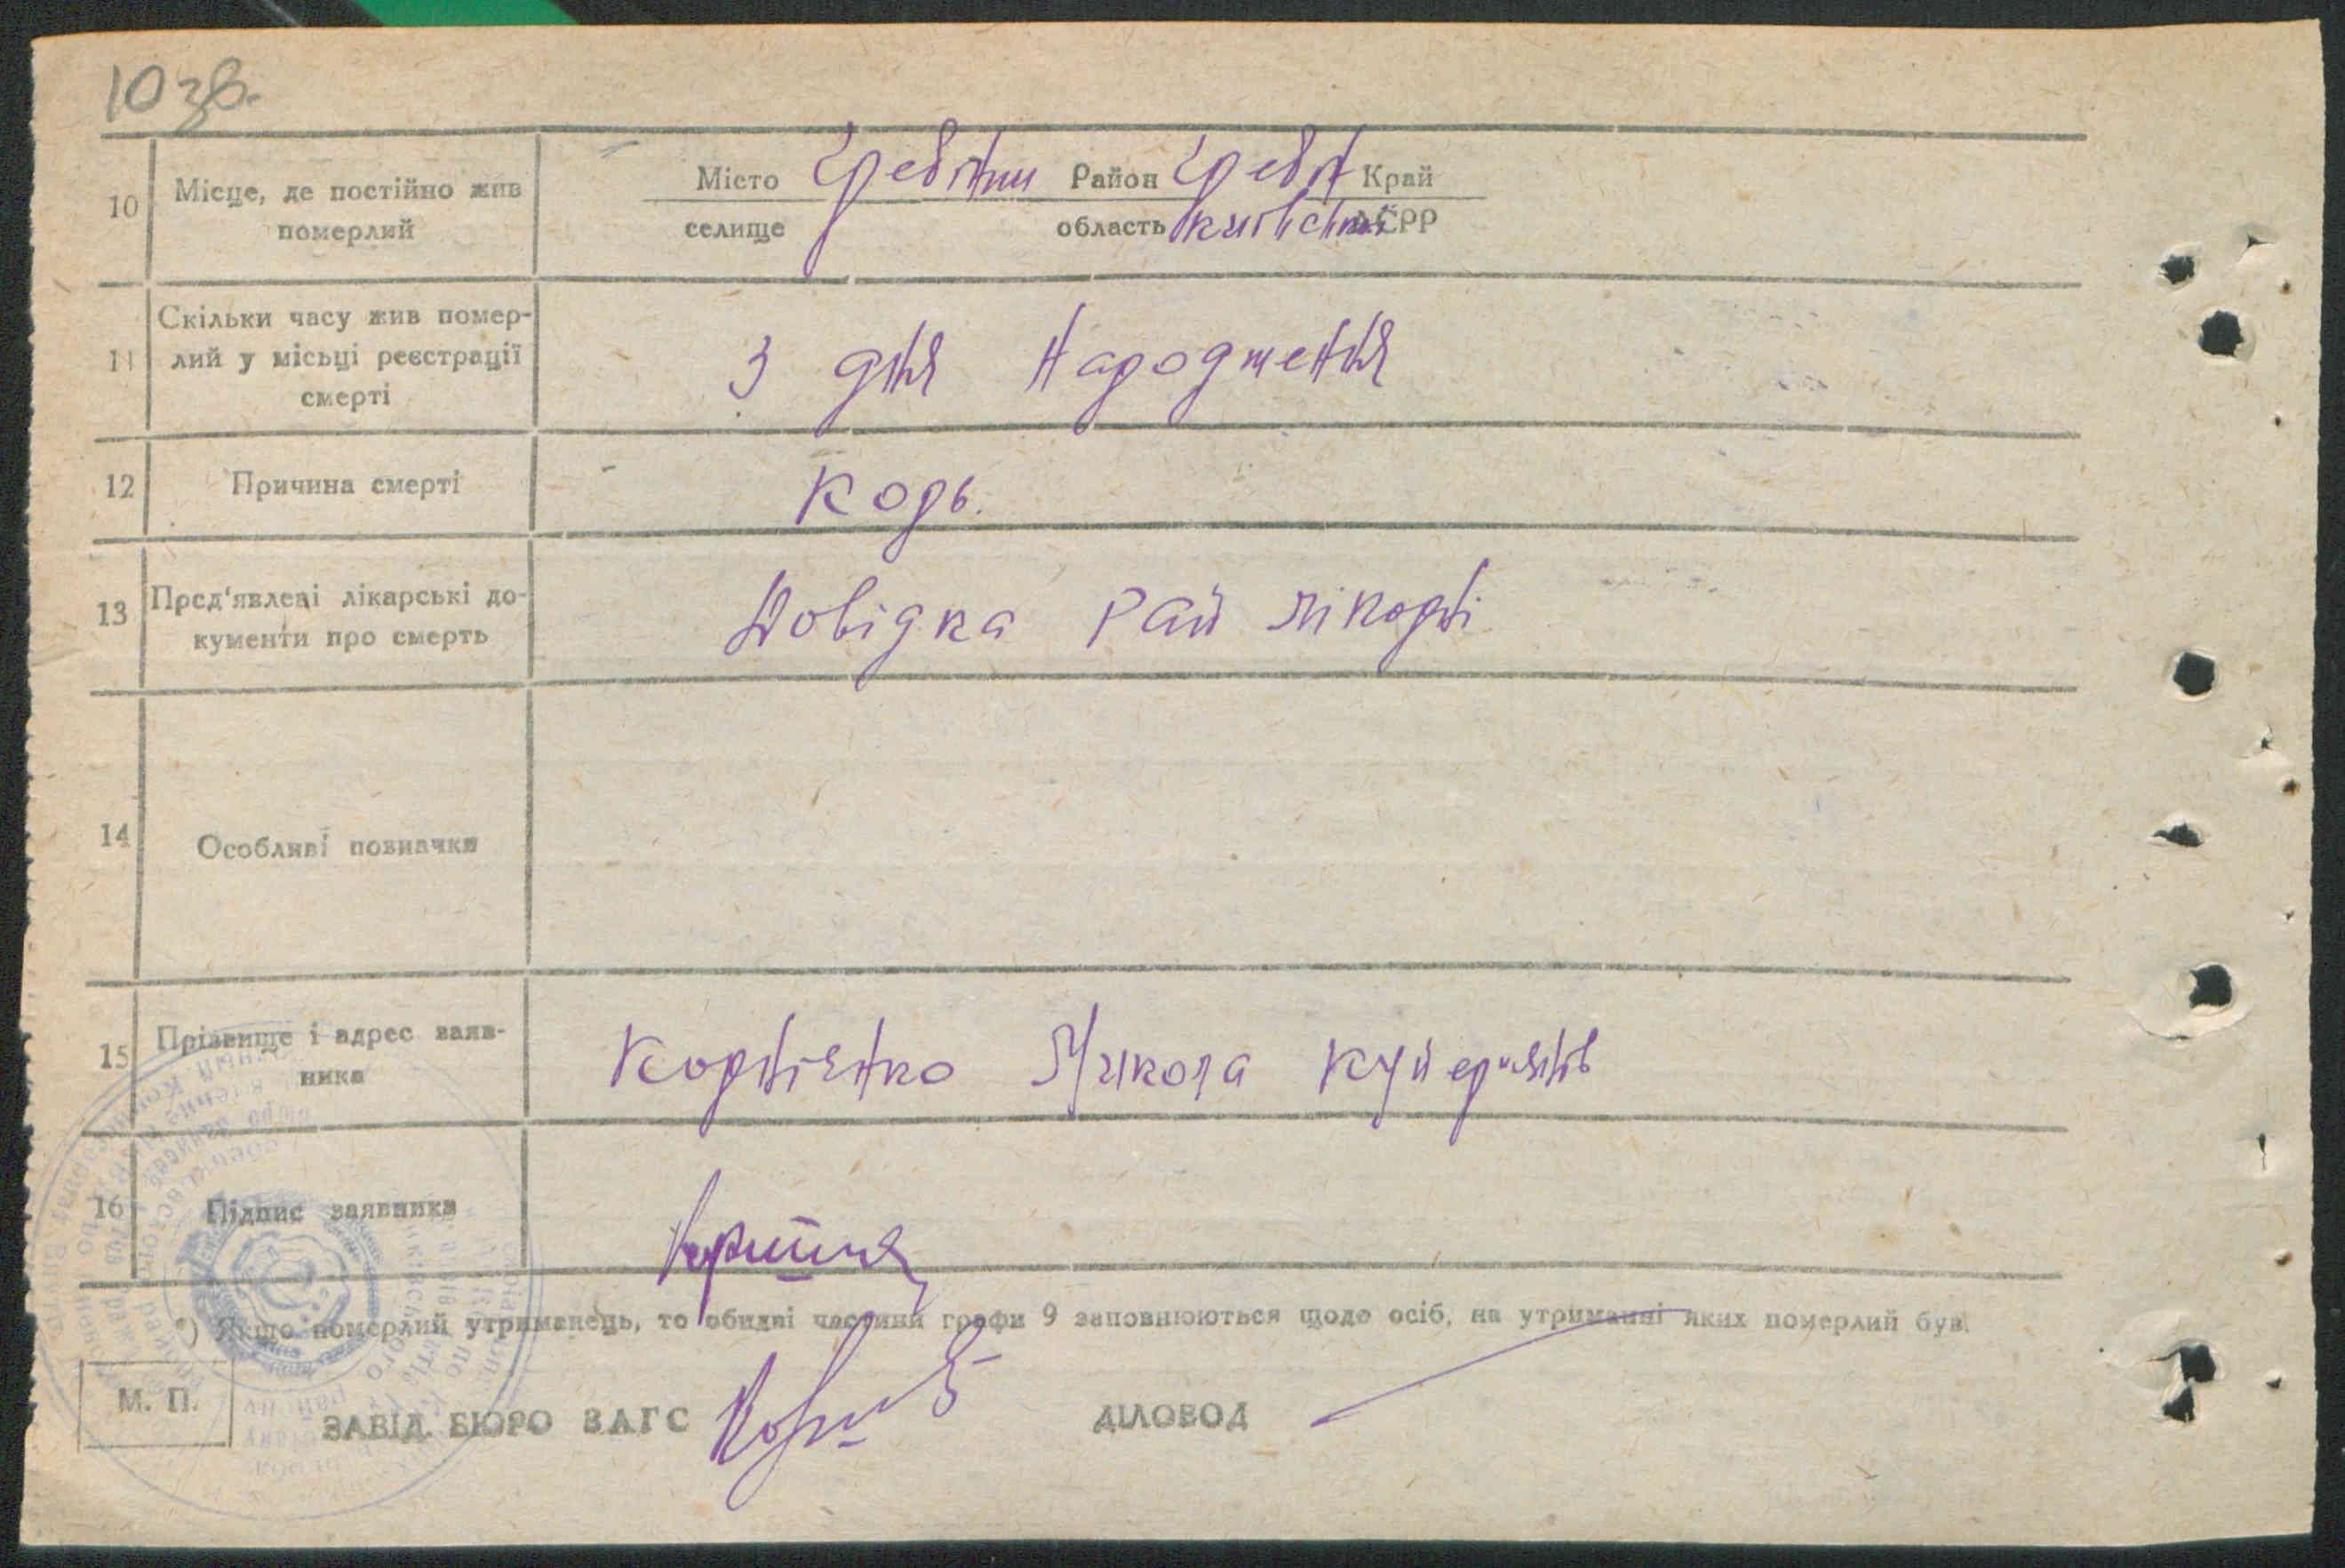 10 зв.
10 Місце, де постійно жив померлий
Місто Гребінки Район Греб. Край
селище область Київської АСРР
11 Скільки часу жив помер-
лий у місьці реєстрації
смерті
З дня народження
12 Причина смерті Корь.
13 Пред'явлені лікарські до-
кументи про смерть
Довідка Рай лікарні
14 Особливі позначки
15 Прізвище і адрес заяв-
ника
Корнієнко Микола
16 Підпис заявника
*) Якщо померлий утриманець, то обидві частини графи 9 заповнюються щодо осіб, на утриманні яких померлий був.
М. П.
ЗАВІД. БЮРО ЗАГС ДІЛОВОД